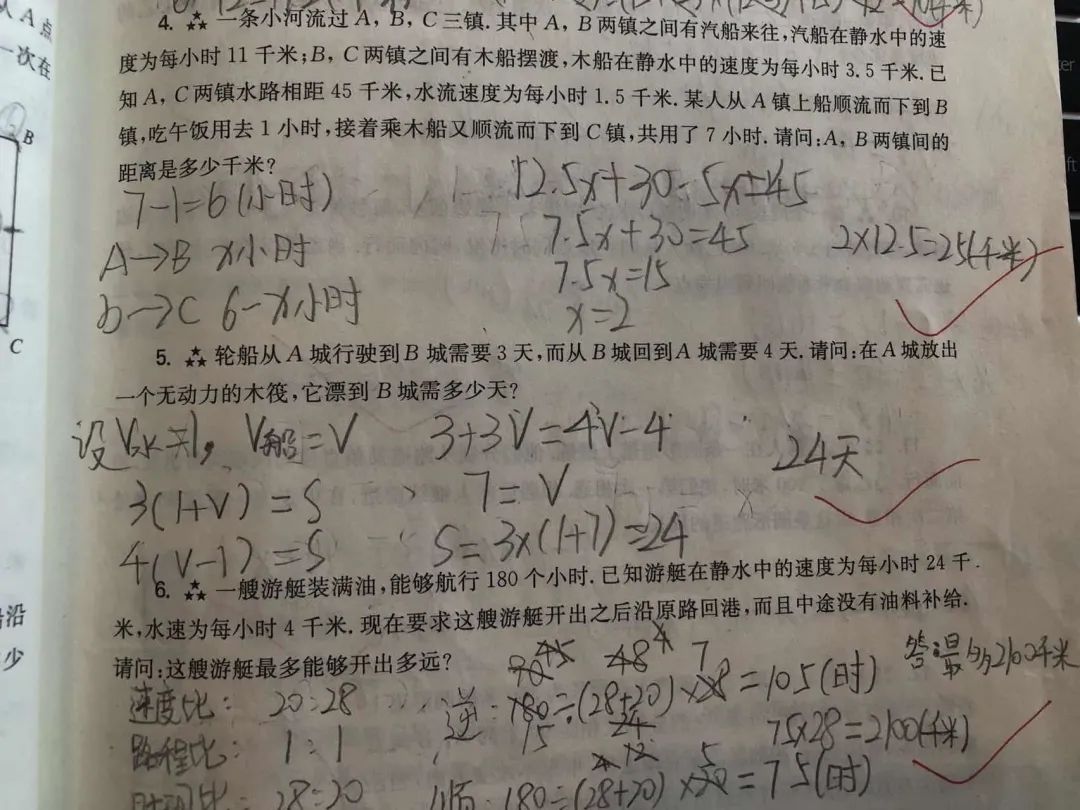 从A点
一次在
B
C
4. 一条小河流过 A, B, C 三镇. 其中 A, B 两镇之间有汽船来往, 汽船在静水中的速
度为每小时 11 千米; B, C 两镇之间有木船摆渡, 木船在静水中的速度为每小时 3.5 千米. 已
知 A, C 两镇水路相距 45 千米, 水流速度为每小时 1.5 千米. 某人从 A 镇上船顺流而下到 B
镇, 吃午饭用去 1 小时, 接着乘木船又顺流而下到 C 镇, 共用了 7 小时. 请问: A, B 两镇间的
距离是多少千米?
7-1=6(小时)
A→B x小时
b→C 6-x小时
12.5x+30-5x=45
7.5x+30=45
7.5x=15
x=2
2×12.5=25(千米)
5. 轮船从 A 城行驶到 B 城需要 3 天, 而从 B 城回到 A 城需要 4 天. 请问: 在 A 城放出
一个无动力的木筏, 它漂到 B 城需多少天?
设V水=1, V船=V
3(1+V)=S
4(V-1)=S
3+3V=4V-4
7=V
S=3×(1+7)=24
24天
6. 一艘游艇装满油, 能够航行 180 个小时. 已知游艇在静水中的速度为每小时 24 千
米, 水速为每小时 4 千米. 现在要求这艘游艇开出之后沿原路回港, 而且中途没有油料补给.
请问: 这艘游艇最多能够开出多远?
答:最多2100千米
速度比: 20:28
路程比: 1:1
时间比: 28:20
逆: 180÷(28+20)×28=105(时)
75×28=2100(千米)
顺: 180÷(28+20)×20=75(时)
沿
少